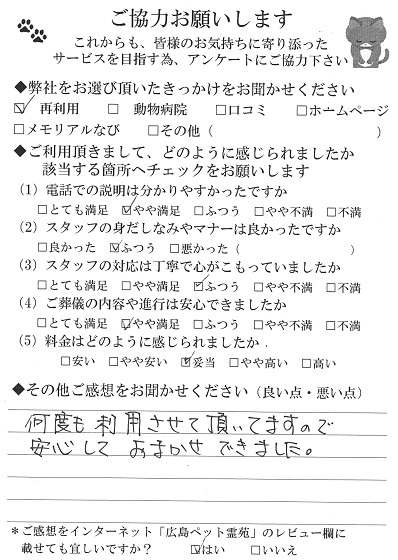 ご協力お願いします
これからも、皆様のお気持ちに寄り添った
サービスを目指す為、アンケートにご協力下さい
◆弊社をお選び頂いたきっかけをお聞かせください
☑再利用 □動物病院 □口コミ □ホームページ
□メモリアルなび □その他（ ）
◆ご利用頂きまして、どのように感じられましたか
該当する箇所へチェックをお願いします
（1）電話での説明は分かりやすかったですか
□とても満足 ☑やや満足 □ふつう □やや不満 □不満
（2）スタッフの身だしなみやマナーは良かったですか
□良かった ☑ふつう □悪かった（ ）
（3）スタッフの対応は丁寧で心がこもっていましたか
□とても満足 □やや満足 ☑ふつう □やや不満 □不満
（4）ご葬儀の内容や進行は安心できましたか
□とても満足 ☑やや満足 □ふつう □やや不満 □不満
（5）料金はどのように感じられましたか
□安い □やや安い ☑妥当 □やや高い □高い
◆その他ご感想をお聞かせください（良い点・悪い点）
何度も利用させて頂いてますので
安心しておまかせできました。
＊ご感想をインターネット「広島ペット霊苑」のレビュー欄に
載せても宜しいですか？ ☑はい □いいえ